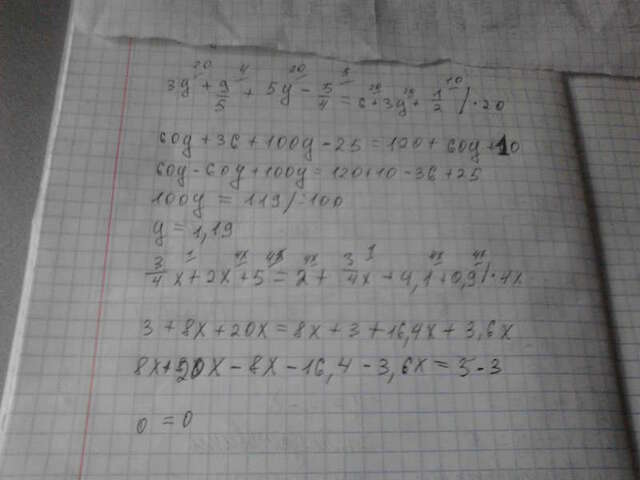 20 4 20 5 20 20 10
3y + 9/5 + 5y - 5/4 = 6 + 3y + 1/2 / · 20
60y + 36 + 100y - 25 = 120 + 60y + 10
60y - 60y + 100y = 120 + 10 - 36 + 25
100y = 119 / : 100
y = 1,19
1 4x 4x 4x 1 4x 4x
3/4 x + 2x + 5 = 2 + 3/4x + 4,1 + 0,9 / · 4x
3 + 8x + 20x = 8x + 3 + 16,4x + 3,6x
8x + 20x - 8x - 16,4 - 3,6x = 3 - 3
0 = 0